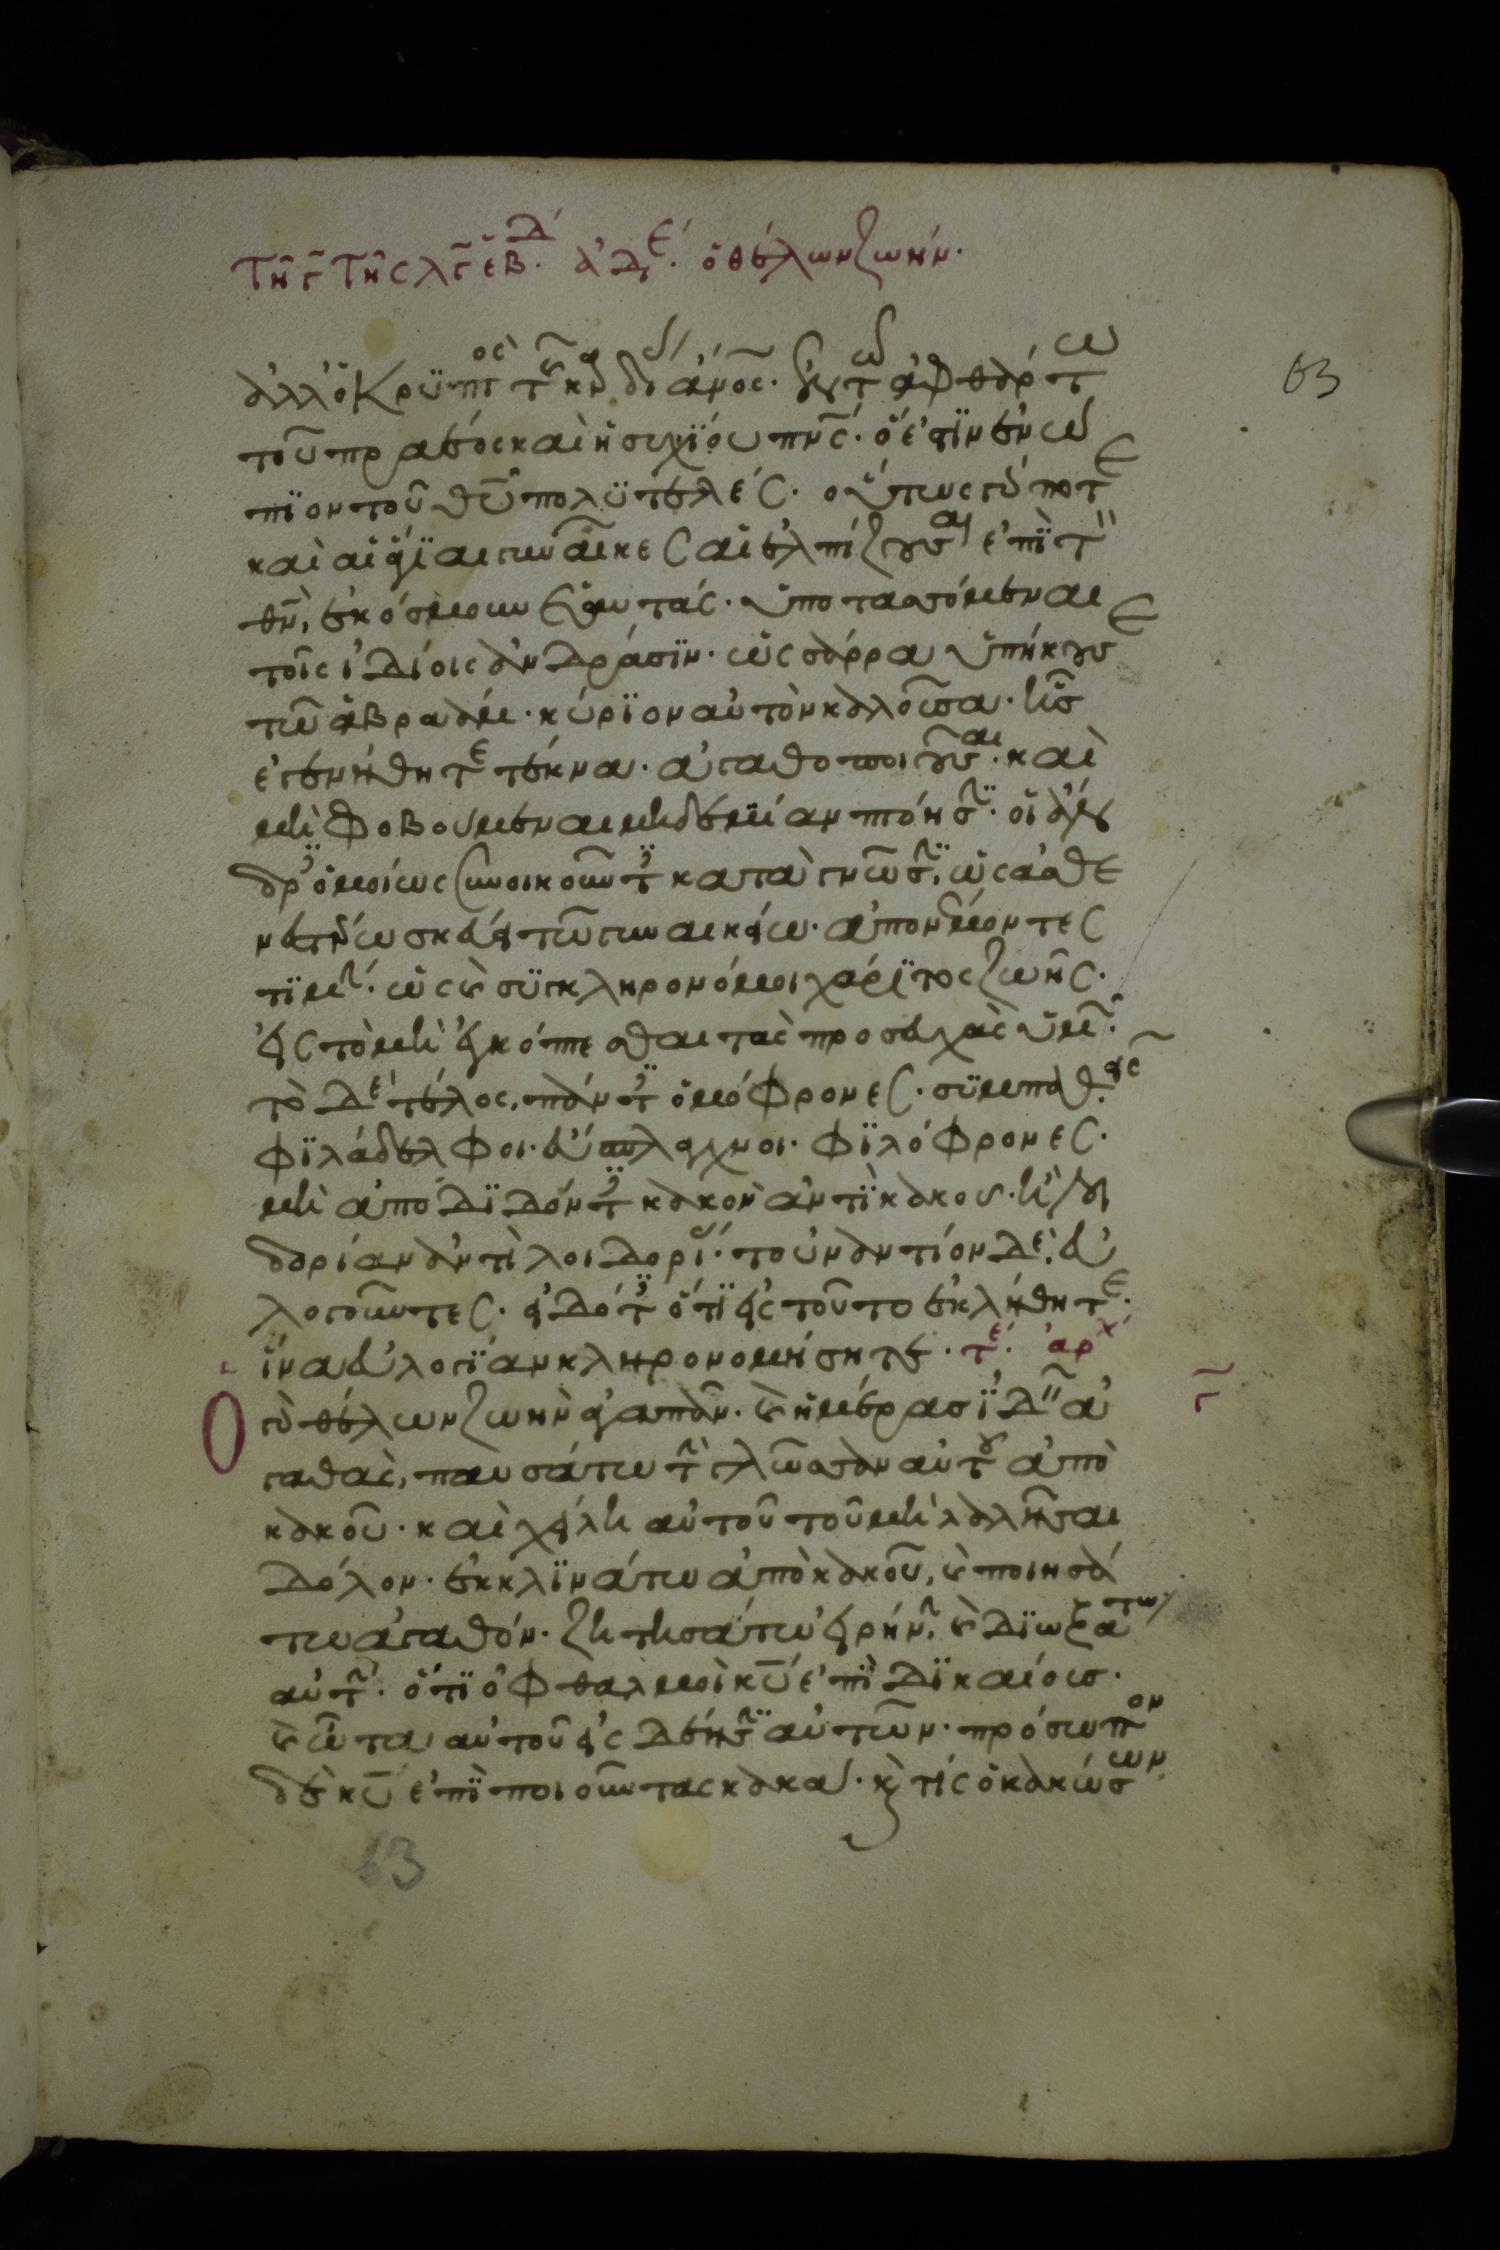 Τῇ γ τῆς λγ ἑβδ. ἀδε. ὁ θέλων ζωήν.
63
ἀλλ ὁ κρυπτὸς τῆς καρδίας ἄνος. ἐν τῶ ἀφθάρτω
τοῦ πραέος καὶ ἡσυχίου πνς. ὅ ἐστιν ἐνώ
πιον τοῦ θυ πολυτελές. οὕτως γάρ ποτε
καὶ αἱ ἅγιαι γυναῖκες αἱ ἐλπίζουσαι ἐπὶ τὸν
θν, ἐκόσμουν ἑαυτάς. ὑποτασσόμεναι
τοῖς ἰδίοις ἀνδράσιν. ὡς σάρρα ὑπήκουσε
τῶ ἀβραάμ. κύριον αὐτὸν καλοῦσα. ἧς
ἐγενήθητε τέκνα. ἀγαθοποιοῦσαι. καὶ
μὴ φοβούμεναι μηδεμίαν πτόησιν. οἱ ἄν
δρες ὁμοίως συνοικοῦντες κατὰ γνῶσιν, ὡς ἀσθε
νεστέρω σκεύει τῶ γυναικείω. ἀπονέμοντες
τιμήν. ὡς καὶ συγκληρονόμοι χάριτος ζωῆς.
εἰς τὸ μὴ ἐγκόπτεσθαι τὰς προσευχὰς ὑμῶν.
τὸ δὲ τέλος, πάντες ὁμόφρονες. συμπαθεῖς
φιλάδελφοι. εὔσπλαγχνοι. φιλόφρονες.
μὴ ἀποδιδόντες κακὸν ἀντὶ κακοῦ. ἢ λοι
δορίαν ἀντὶ λοιδορίας. τοὐναντίον δὲ, εὐ
λογοῦντες. εἰδότες ὅτι εἰς τοῦτο ἐκλήθητε.
ἵνα εὐλογίαν κληρονομήσητε. τε. ἀρχ
Ὁ γὰρ θέλων ζωὴν ἀγαπᾶν. καὶ ἡμέρας ἰδεῖν ἀ
γ
γαθὰς, παυσάτω τὴν γλῶσσαν αὐτοῦ ἀπὸ
κακοῦ. καὶ χείλη αὐτοῦ τοῦ μὴ λαλῆσαι
δόλον. ἐκκλινάτω ἀπὸ κακοῦ, καὶ ποιησά
τω ἀγαθόν. ζητησάτω εἰρήνην, καὶ διωξάτω
αὐτήν. ὅτι ὀφθαλμοὶ κυ ἐπὶ δικαίους.
καὶ ὦτα αὐτοῦ εἰς δέησιν αὐτῶν. πρόσωπον
δὲ κυ ἐπὶ ποιοῦντας κακά. καὶ τίς ὁ κακώσων
63